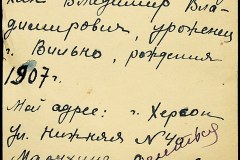 как Владимир Вла-
димирович, уроженец
г. Вильно, рождения
1907 г.
Мой адрес: г. Херсон
ул. Нижняя № 4